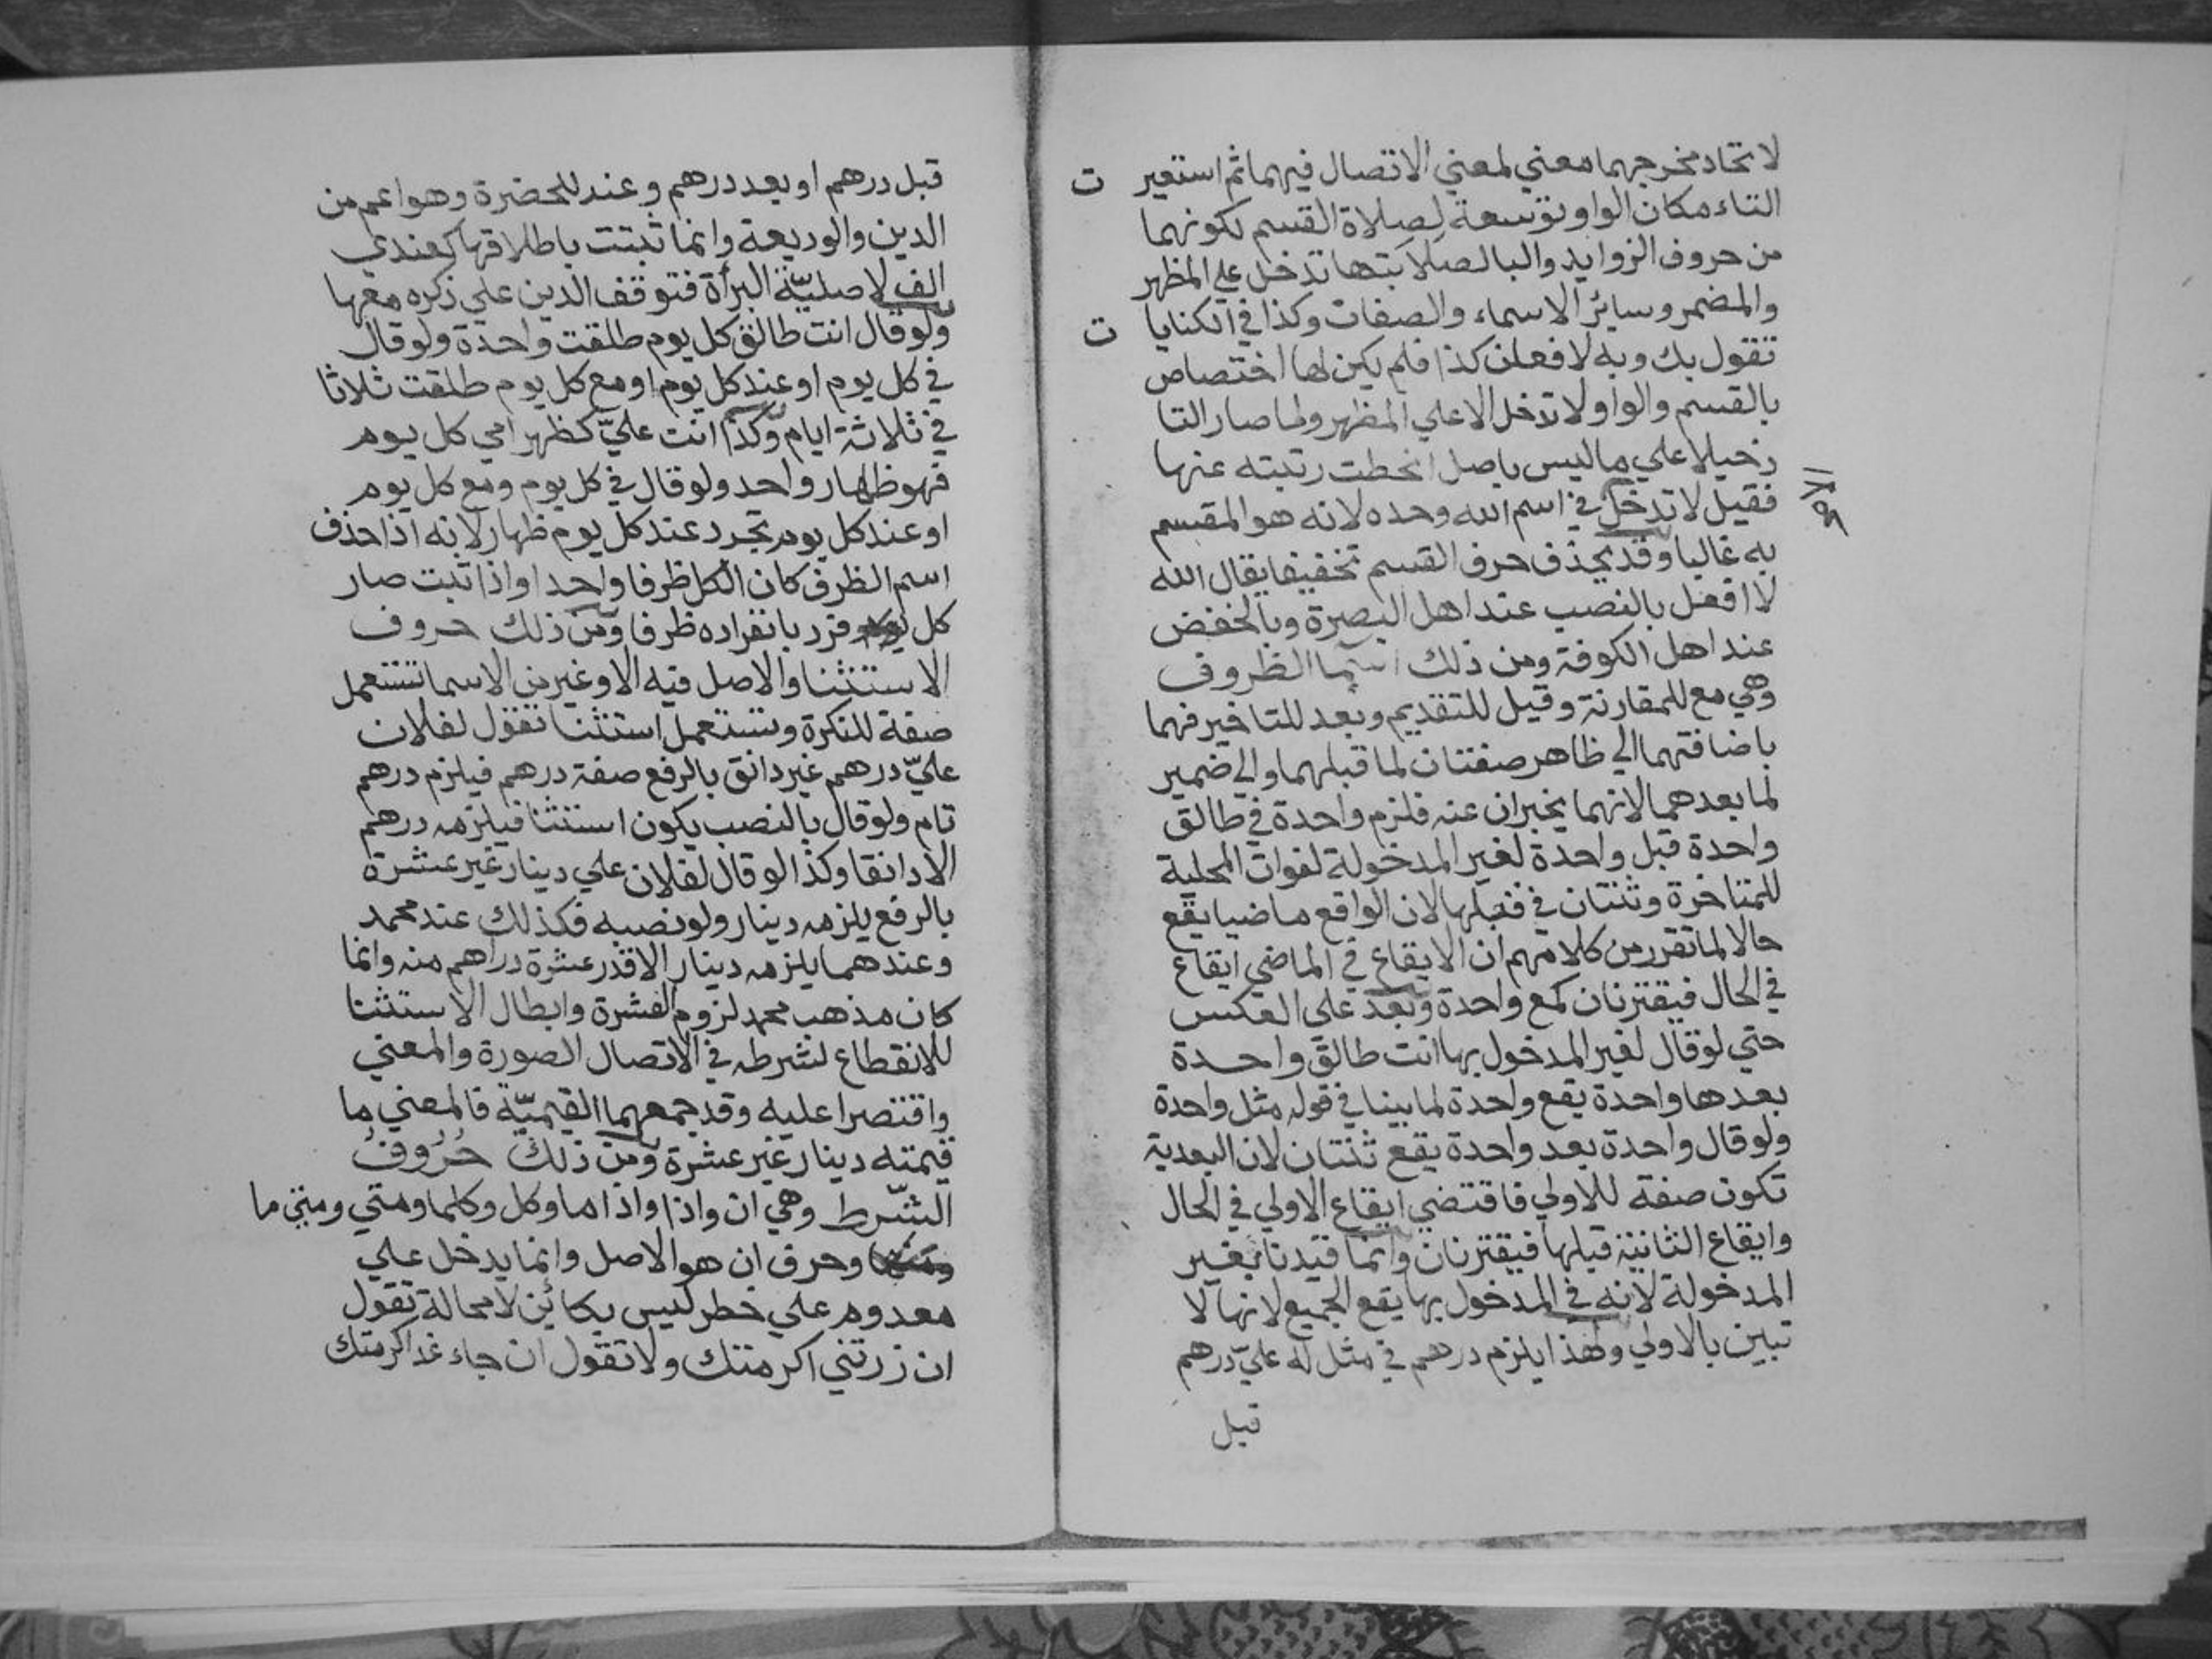 لاتحاد مخرجهما معني لمعني الاتصال فيهما ثم استعير ت
التاء مكان الواو توسعة لصلاة القسم لكونهما
من حروف الزوايد والبا لصلابتها تدخل علي المظهر
والمضمر وسائر الاسماء والصفات وكذا في الكنايا ت
تقول بك وبه لافعلن كذا فلم يكن لها اختصاص
بالقسم والواو لا تدخل الا علي المظهر ولما صار التا
دخيلا علي ما ليس باصل انحطت رتبته عنها
فقيل لا تدخل في اسم الله وحده لانه هو المقسم
به غالبا وقد يحذف حرف القسم تخفيفا يقال الله
لا افعل بالنصب عند اهل البصرة وبالخفض
عند اهل الكوفة ومن ذلك اسما الظروف
وهي مع للمقارنة وقبل للتقديم وبعد للتاخير فهما
باضافتهما الي ظاهر صفتان لما قبلهما والي ضمير
لما بعدهما لانهما يخبران عنه فلزم واحدة في طالق
واحدة قبل واحدة لغير المدخولة لفوات المحلية
للمتاخرة وثنتان في قبلها لان الواقع ماضيا يقع
حالا لما تقرر من كلامهم ان الايقاع في الماضي ايقاع
في الحال فيقترنان كمع واحدة وبعد علي العكس
حتي لو قال لغير المدخول بها انت طالق واحدة
بعدها واحدة يقع واحدة لما بينا في قوله مثل واحدة
ولو قال واحدة بعد واحدة يقع ثنتان لان البعدية
تكون صفة للاولي فاقتضي ايقاع الاولي في الحال
وايقاع الثانية قبلها فيقترنان وانما قيدنا بغير
المدخولة لانه في المدخول بها يقع الجميع لانها لا
تبين بالاولي ولهذا يلزم درهم في مثل له علي درهم
قبل
قبل درهم او بعد درهم وعند للحضرة وهو اعم من
الدين والوديعة وانما ثبتت باطلاقها كعندي
الف لاصلية البرأة فتوقف الدين علي ذكره معها
ولو قال انت طالق كل يوم طلقت واحدة ولو قال
في كل يوم او عند كل يوم او مع كل يوم طلقت ثلاثا
في ثلاثة ايام وكذا انت علي كظهر امي كل يوم
فهو ظهار واحد ولو قال في كل يوم ومع كل يوم
او عند كل يوم تجدد عند كل يوم ظهار لانه اذا حذف
اسم الظرف كان الكل ظرفا واحدا واذا ثبت صار
كل فرد بانفراده ظرفا ومن ذلك حروف
الاستثنا والاصل فيه الا وغير من الاسما تستعمل
صفة للنكرة وتستعمل استثنا تقول لفلان
علي درهم غير دانق بالرفع صفة درهم فيلزم درهم
تام ولو قال بالنصب يكون استثنا فيلزمه درهم
الا دانقا وكذا لو قال لفلان علي دينار غير عشرة
بالرفع يلزمه دينار ولو نصبه فكذلك عند محمد
وعندهما يلزمه دينار الا قدر عشرة دراهم منه وانما
كان مذهب محمد لزوم العشرة وابطال الاستثنا
للانقطاع لشرطه في الاتصال الصورة والمعني
واقتصرا عليه وقد جمعهما القيمية فالمعني ما
قيمته دينار غير عشرة ومن ذلك حروف
الشرط وهي ان واذا واذا ما وكل وكلما ومتي ومتي ما
وحرف ان هو الاصل وانما يدخل علي
معدوم علي خطر ليس بكائن لا محالة تقول
ان زرتني اكرمتك ولا تقول ان جاء غد اكرمتك